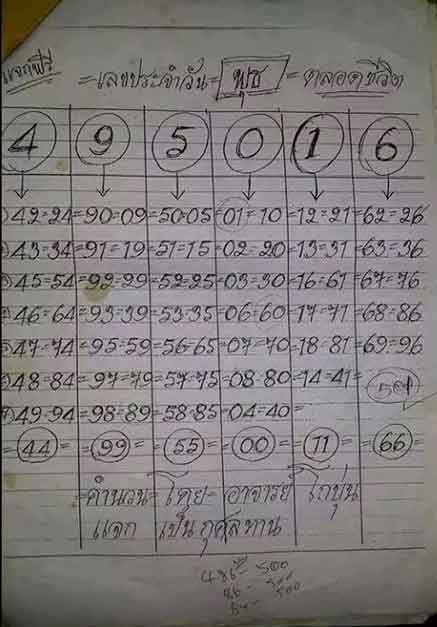 แจกฟรี
=เลขประจำวัน= พุธ =ตลอดชีวิต
4 9 5 0 1 6
42=24=90=09=50=05=01=10=12=21=62=26
43=34=91=19=51=15=02=20=13=31=63=36
45=54=92=29=52=25=03=30=16=61=67=76
46=64=93=39=53=35=06=60=17=71=68=86
47=74=95=59=56=65=07=70=18=81=69=96
48=84=97=79=57=75=08=80=14=41=
49=94=98=89=58=85=04=40=
=44= =99= =55= =00= =11= =66=
=คำนวนโดย=อาจารย์ โกบุ่น
แจก เป็นกุศลทาน
486= 500
86- 500
500